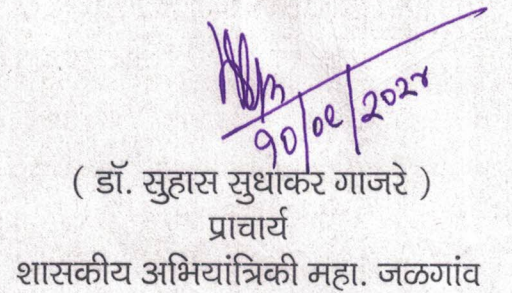 १०/०९/२०२४
( डॉ. सुहास सुधाकर गाजरे )
प्राचार्य
शासकीय अभियांत्रिकी महा. जळगांव